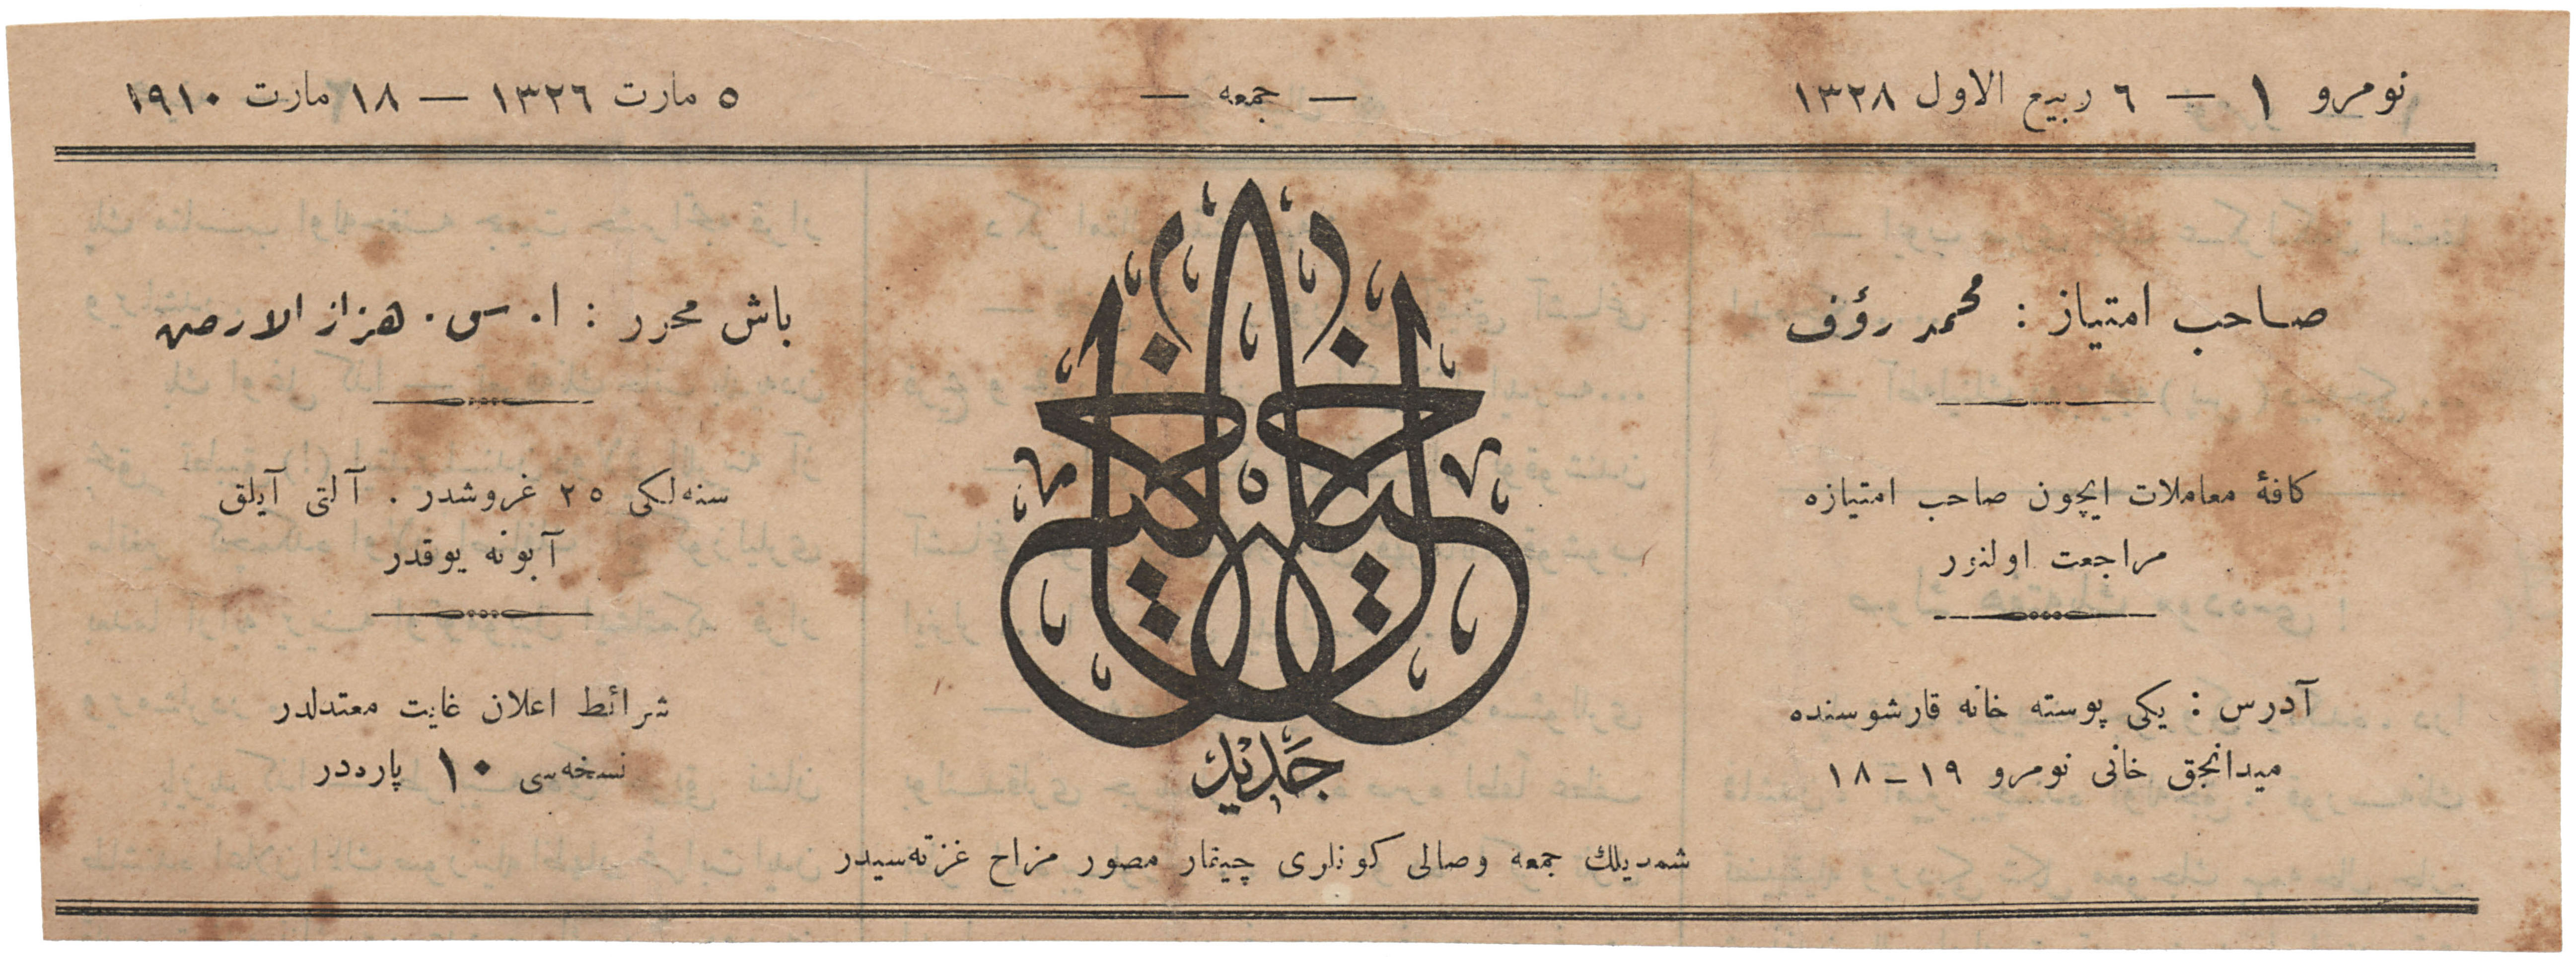 نومرو ١ — ٦ ربيع الاول ١٣٢٨
— جمعه —
٥ مارت ١٣٢٦ — ١٨ مارت ١٩١٠
صاحب امتياز : محمد رؤف
كافۀ معاملات ايچون صاحب امتيازه
مراجعت اولنور
آدرس : يكى پوسته خانه قارشوسنده
ميدانجق خانى نومرو ١٩ـ١٨
جديد
باش محرر : ا. س. هزاز الارض
سنه‌لكى ٢٥ غروشدر . آلتى آيلق
آبونه يوقدر
شرائط اعلان غايت معتدلدر
نسخه‌سى ١٠ پاره‌در
شمديلك جمعه وصالى كونلرى چيقار مصور مزاح غزته‌سيدر